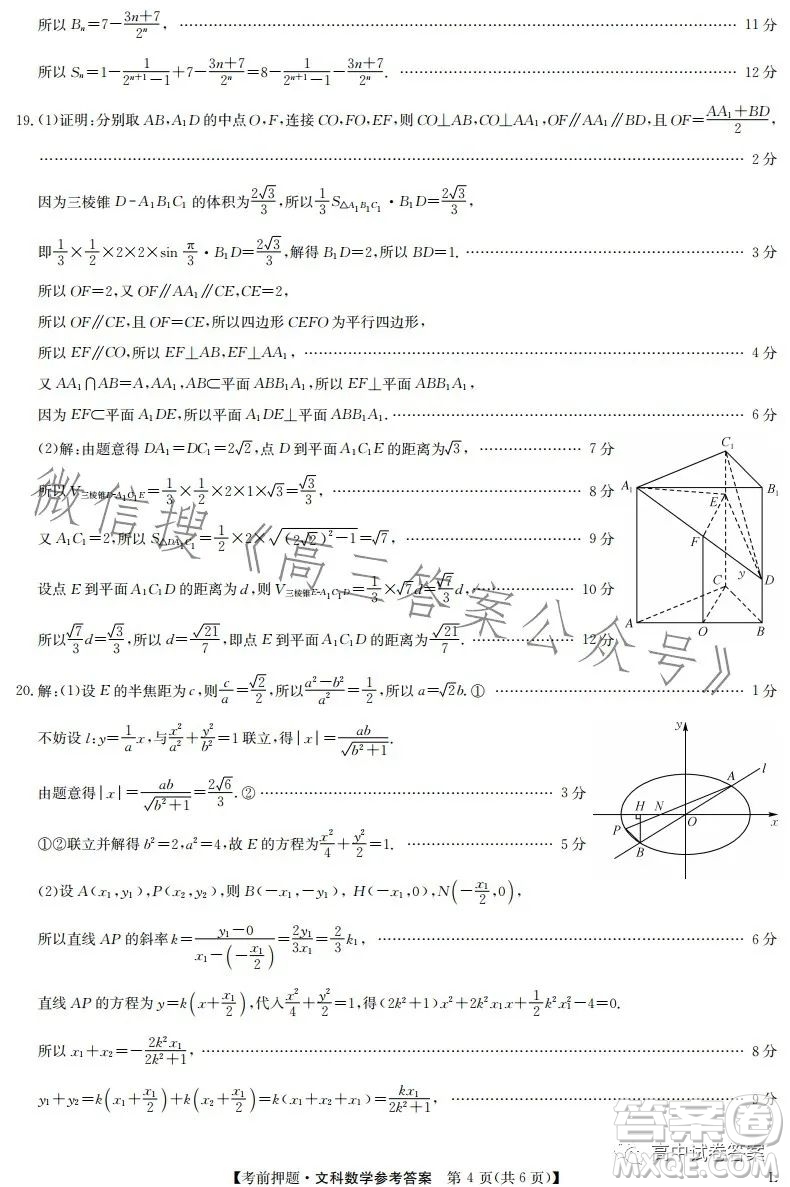 所以 Bₙ=7−(3n+7)/2ⁿ, …… 11 分
所以 Sₙ=1−1/(2ⁿ⁺¹−1)+7−(3n+7)/2ⁿ=8−1/(2ⁿ⁺¹−1)−(3n+7)/2ⁿ. …… 12 分
19.(1)证明:分别取 AB,A₁D 的中点 O,F,连接 CO,FO,EF,则 CO⊥AB,CO⊥AA₁,OF∥AA₁∥BD,且 OF=(AA₁+BD)/2,
…… 2 分
因为三棱锥 D-A₁B₁C₁ 的体积为 2√3/3,所以 1/3 S△A₁B₁C₁·B₁D=2√3/3,
即 1/3×1/2×2×2×sin π/3·B₁D=2√3/3,解得 B₁D=2,所以 BD=1. …… 3 分
所以 OF=2,又 OF∥AA₁∥CE,CE=2,
所以 OF∥CE,且 OF=CE,所以四边形 CEFO 为平行四边形,
所以 EF∥CO,所以 EF⊥AB,EF⊥AA₁, …… 4 分
又 AA₁∩AB=A,AA₁,AB⊂平面 ABB₁A₁,所以 EF⊥平面 ABB₁A₁,
因为 EF⊂平面 A₁DE,所以平面 A₁DE⊥平面 ABB₁A₁. …… 6 分
(2)解:由题意得 DA₁=DC₁=2√2,点 D 到平面 A₁C₁E 的距离为√3, …… 7 分
所以 V三棱锥D-A₁C₁E=1/3×1/2×2×1×√3=√3/3, …… 8 分
又 A₁C₁=2,所以 S△DA₁C₁=1/2×2×√((2√2)²−1)=√7, …… 9 分
设点 E 到平面 A₁C₁D 的距离为 d,则 V三棱锥E-A₁C₁D=1/3×√7d=√7/3 d, …… 10 分
所以 √7/3 d=√3/3,所以 d=√21/7,即点 E 到平面 A₁C₁D 的距离为 √21/7. …… 12 分
C₁
A₁
B₁
E
F
C
y
D
A
O
B
20.解:(1)设 E 的半焦距为 c,则 c/a=√2/2,所以 (a²−b²)/a²=1/2,所以 a=√2b.① …… 1 分
不妨设 l:y=1/a x,与 x²/a²+y²/b²=1 联立,得|x|=ab/√(b²+1).
由题意得|x|=ab/√(b²+1)=2√6/3.② …… 3 分
①②联立并解得 b²=2,a²=4,故 E 的方程为 x²/4+y²/2=1. …… 5 分
y
A
l
H
N
O
x
P
B
(2)设 A(x₁,y₁),P(x₂,y₂),则 B(−x₁,−y₁), H(−x₁,0),N(−x₁/2,0),
所以直线 AP 的斜率 k=(y₁−0)/(x₁−(−x₁/2))=2y₁/3x₁=2/3 k₁, …… 6 分
直线 AP 的方程为 y=k(x+x₁/2),代入 x²/4+y²/2=1,得(2k²+1)x²+2k²x₁x+1/2 k²x₁²−4=0.
所以 x₁+x₂=−2k²x₁/(2k²+1), …… 8 分
y₁+y₂=k(x₁+x₁/2)+k(x₂+x₁/2)=k(x₁+x₂+x₁)=kx₁/(2k²+1), …… 9 分
【考前押题·文科数学参考答案 第 4 页(共 6 页)】
L
微信搜《高三答案公众号》
答案圈
高中试卷答案
MXQE.COM